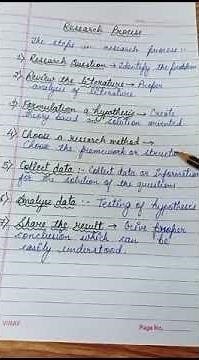 Research Process
The steps in research process :-
1) Research Question → Identify the problem
2) Review the literature → Proper
analysis of literature.
3) Formulation a hypothesis → Create
theory based and solution oriented.
4) Choose a research method →
Choose the framework or structure
5) Collect data :- Collect data or Information
for the solution of the questions
6) Analyse data :- Testing of hypothesis
7) Share the result → Give proper
conclusion which can be
easily understood.
Page No.